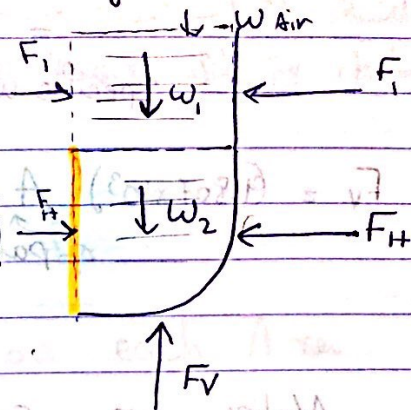 W Air
F₁ F₁
ω₁
F_H ω₂ F_H
F_V